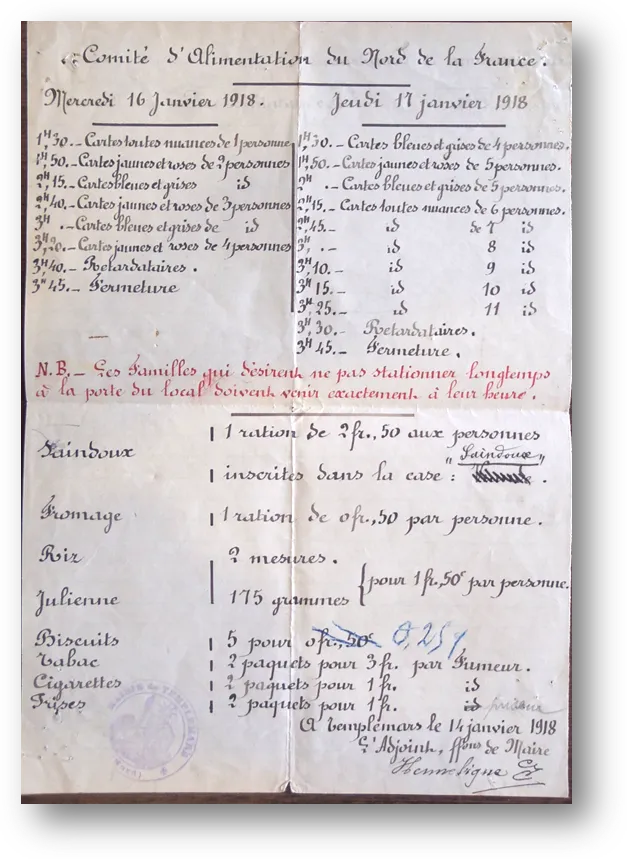 Comité d'Alimentation du Nord de la France.
Mercredi 16 Janvier 1918.
1H,30.- Cartes toutes nuances de 1 personne
1H,50.- Cartes jaunes et roses de 2 personnes
2H,15.- Cartes bleues et grises id
2H,40.- Cartes jaunes et roses de 3 personnes
3H .- Cartes bleues et grises de id
3H,20.- Cartes jaunes et roses de 4 personnes
3H,40.- Retardataires.
3H 45.- Fermeture
Jeudi 17 janvier 1918
1H,30.- Cartes bleues et grises de 4 personnes.
1H,50.- Cartes jaunes et roses de 5 personnes.
2H .- Cartes bleues et grises de 5 personnes.
2H,15.- Cartes toutes nuances de 6 personnes.
2H,45.- id de 7 id
3H, .- id 8 id
3H,10.- id 9 id
3H 15.- id 10 id
3H 25.- id 11 id
3H 30.- Retardataires.
3H 45.- Fermeture.
N.B. - Les Familles qui désirent ne pas stationner longtemps
à la porte du local doivent venir exactement à leur heure.
Saindoux 1 ration de 2fr.,50 aux personnes
inscrites dans la case : "Saindoux".
Fromage 1 ration de 0fr.,50 par personne.
Riz 2 mesures.
Julienne 175 grammes
pour 1fr.,50c par personne.
Biscuits 5 pour 0fr.,50c 0,25
Tabac 2 paquets pour 3fr. par Fumeur.
Cigarettes 2 paquets pour 1fr. id
Prises 2 paquets pour 1fr. id priseur
A Templemars le 14 janvier 1918
L'Adjoint, ffons de Maire
MAIRIE de TEMPLEMARS